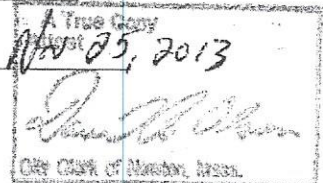 A True Copy
Attest
Nov 25, 2013
City Clerk of Newton, Mass.